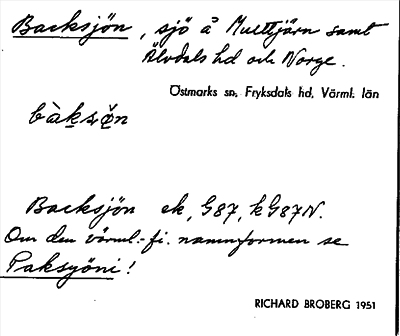 Backsjön, sjö å Mulltjärn samt
Älvdals hd och Norge.
Östmarks sn, Fryksdals hd, Värml. län
Backsjön ek, G87, kG87N.
Om den värml.-fi. namnformen se
Paksyöni!
RICHARD BROBERG 1951